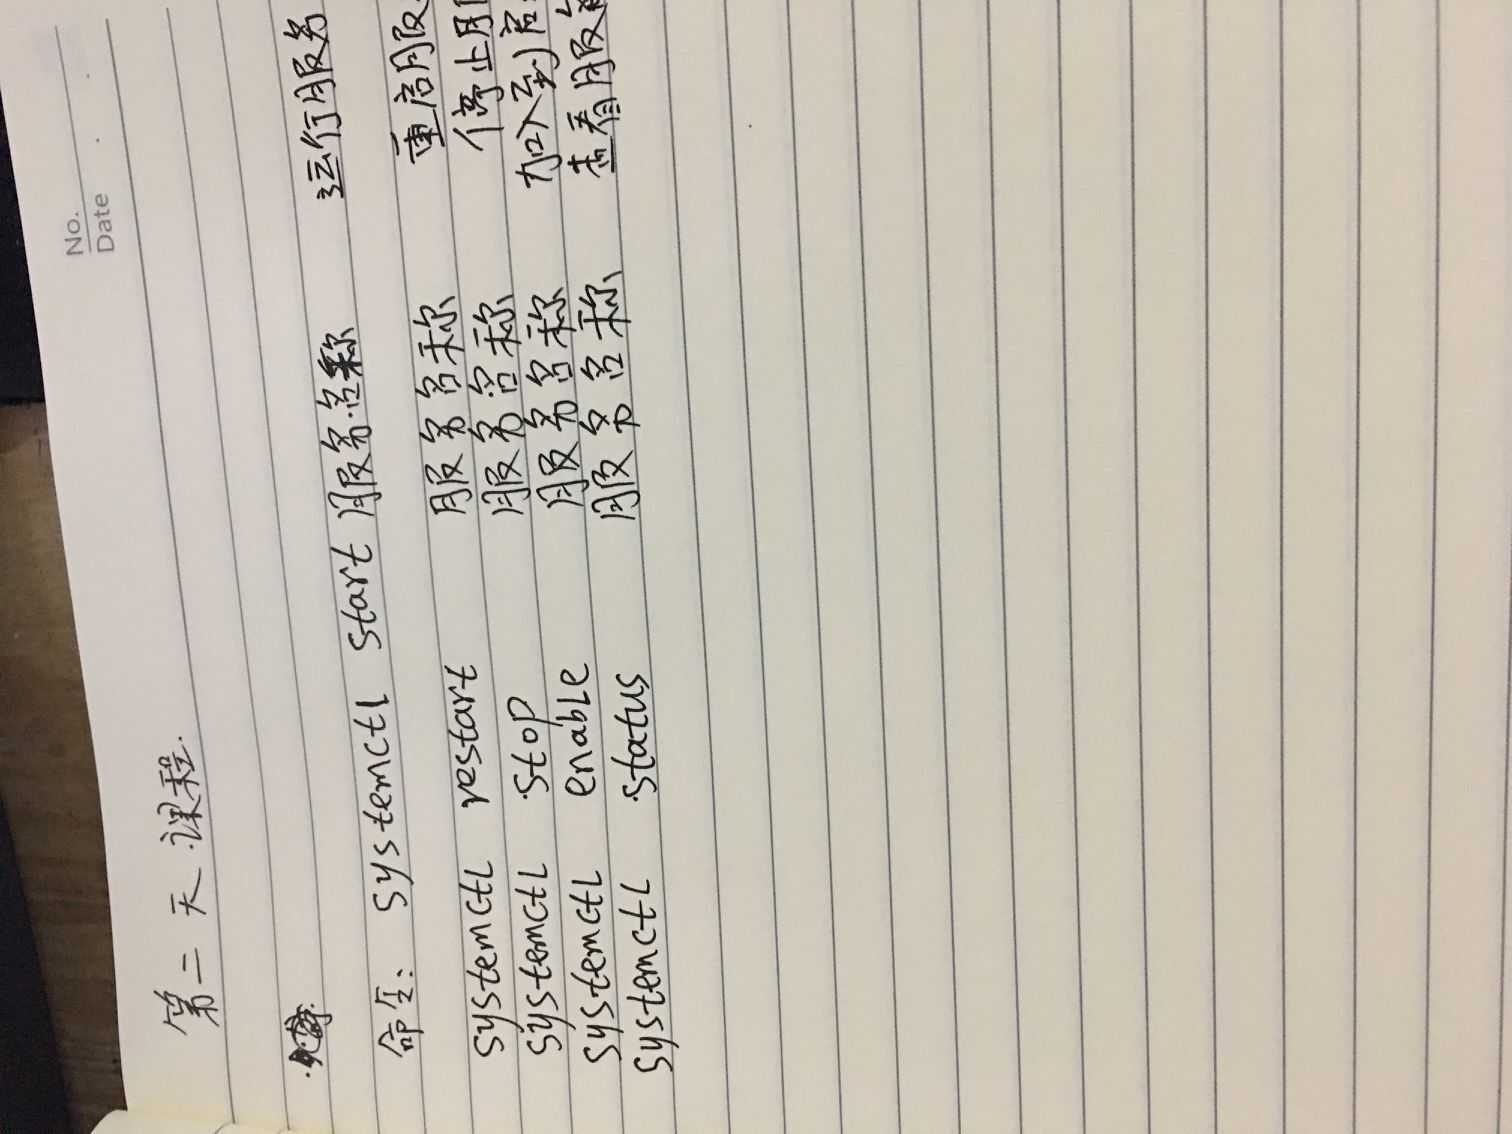 No.
Date
第二天课程.
命令: systemctl start 服务名称 运行服务
systemctl restart 服务名称 重启服
systemctl stop 服务名称 停止
systemctl enable 服务名称 加入到
systemctl status 服务名称 查看服